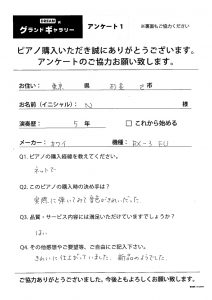 グランドギャラリー アンケート1 ※裏面もご協力ください
ピアノ購入いただき誠にありがとうございます。
アンケートのご協力お願い致します。
お住い: 東京 市
お名前(イニシャル): N 様
演奏歴: 5 年 □ これから始める
メーカー: カワイ 機種: RX-3
Q1. ピアノの購入経緯を教えてください。
ネットで
Q2. このピアノの購入時の決め手は?
実際に弾いてみて音色がきれいだった
Q3. 品質・サービス内容には満足いただけていますでしょうか?
はい
Q4. その他感想やご要望等、ご自由にご記入下さい。
きれいに仕上がっていました。新品のようでした。
ご協力ありがとうございました。今後ともよろしくお願い致します。